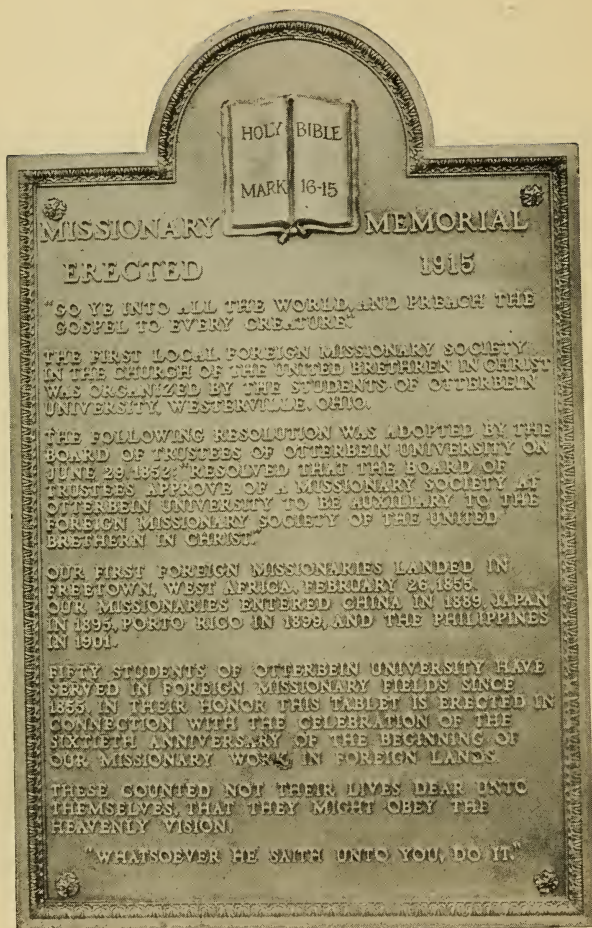 HOLY BIBLE
MARK 16-15
MISSIONARY MEMORIAL
ERECTED 1915
"GO YE INTO ALL THE WORLD, AND PREACH THE
GOSPEL TO EVERY CREATURE."
THE FIRST LOCAL FOREIGN MISSIONARY SOCIETY
IN THE CHURCH OF THE UNITED BRETHREN IN CHRIST
WAS ORGANIZED BY THE STUDENTS OF OTTERBEIN
UNIVERSITY, WESTERVILLE, OHIO.
THE FOLLOWING RESOLUTION WAS ADOPTED BY THE
BOARD OF TRUSTEES OF OTTERBEIN UNIVERSITY ON
JUNE 29, 1852: "RESOLVED THAT THE BOARD OF
TRUSTEES APPROVE OF A MISSIONARY SOCIETY AT
OTTERBEIN UNIVERSITY TO BE AUXILLARY TO THE
FOREIGN MISSIONARY SOCIETY OF THE UNITED
BRETHERN IN CHRIST."
OUR FIRST FOREIGN MISSIONARIES LANDED IN
FREETOWN, WEST AFRICA, FEBRUARY 26, 1855.
OUR MISSIONARIES ENTERED CHINA IN 1889, JAPAN
IN 1895, PORTO RICO IN 1899, AND THE PHILIPPINES
IN 1901.
FIFTY STUDENTS OF OTTERBEIN UNIVERSITY HAVE
SERVED IN FOREIGN MISSIONARY FIELDS SINCE
1855. IN THEIR HONOR THIS TABLET IS ERECTED IN
CONNECTION WITH THE CELEBRATION OF THE
SIXTIETH ANNIVERSARY OF THE BEGINNING OF
OUR MISSIONARY WORK IN FOREIGN LANDS.
THESE COUNTED NOT THEIR LIVES DEAR UNTO
THEMSELVES, THAT THEY MIGHT OBEY THE
HEAVENLY VISION.
"WHATSOEVER HE SAITH UNTO YOU, DO IT."